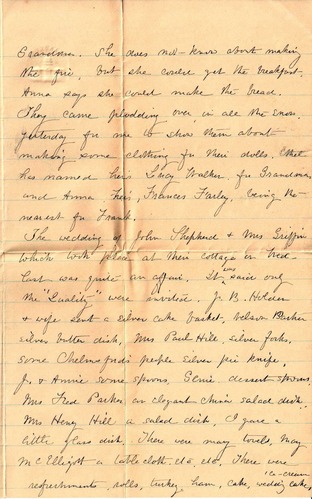 Grandma. She does not know about making
the pie, but she could get the breakfast.
Anna says she could make the bread.
They came plodding over in all the snow
yesterday for me to show them about
making some clothing for their dolls. Ethel
has named hers Lucy Walker, for Grandma
and Anna hers, Frances Farley, being the
nearest for Frank.
The wedding of John Shepherd & Mrs Griffin
which took place at their cottage in
East was quite an affair. It was said only
the "Quality" were invited. J. B. Holden
& wife sent a silver cake basket, Nelson Parker
silver butter dish, Mrs Paul Hill, silver forks,
some Chelmsford people silver pie knife,
J. & Annie some spoons, Genie dessert spoons,
Mrs Fred Parker an elegant china salad dish,
Mrs Henry Hill a salad dish, I gave a
little glass dish. There were many towels, May
McElligott a table cloth etc, etc. There were
ice-cream
refreshments, rolls, turkey, ham, cake, wedding cake,